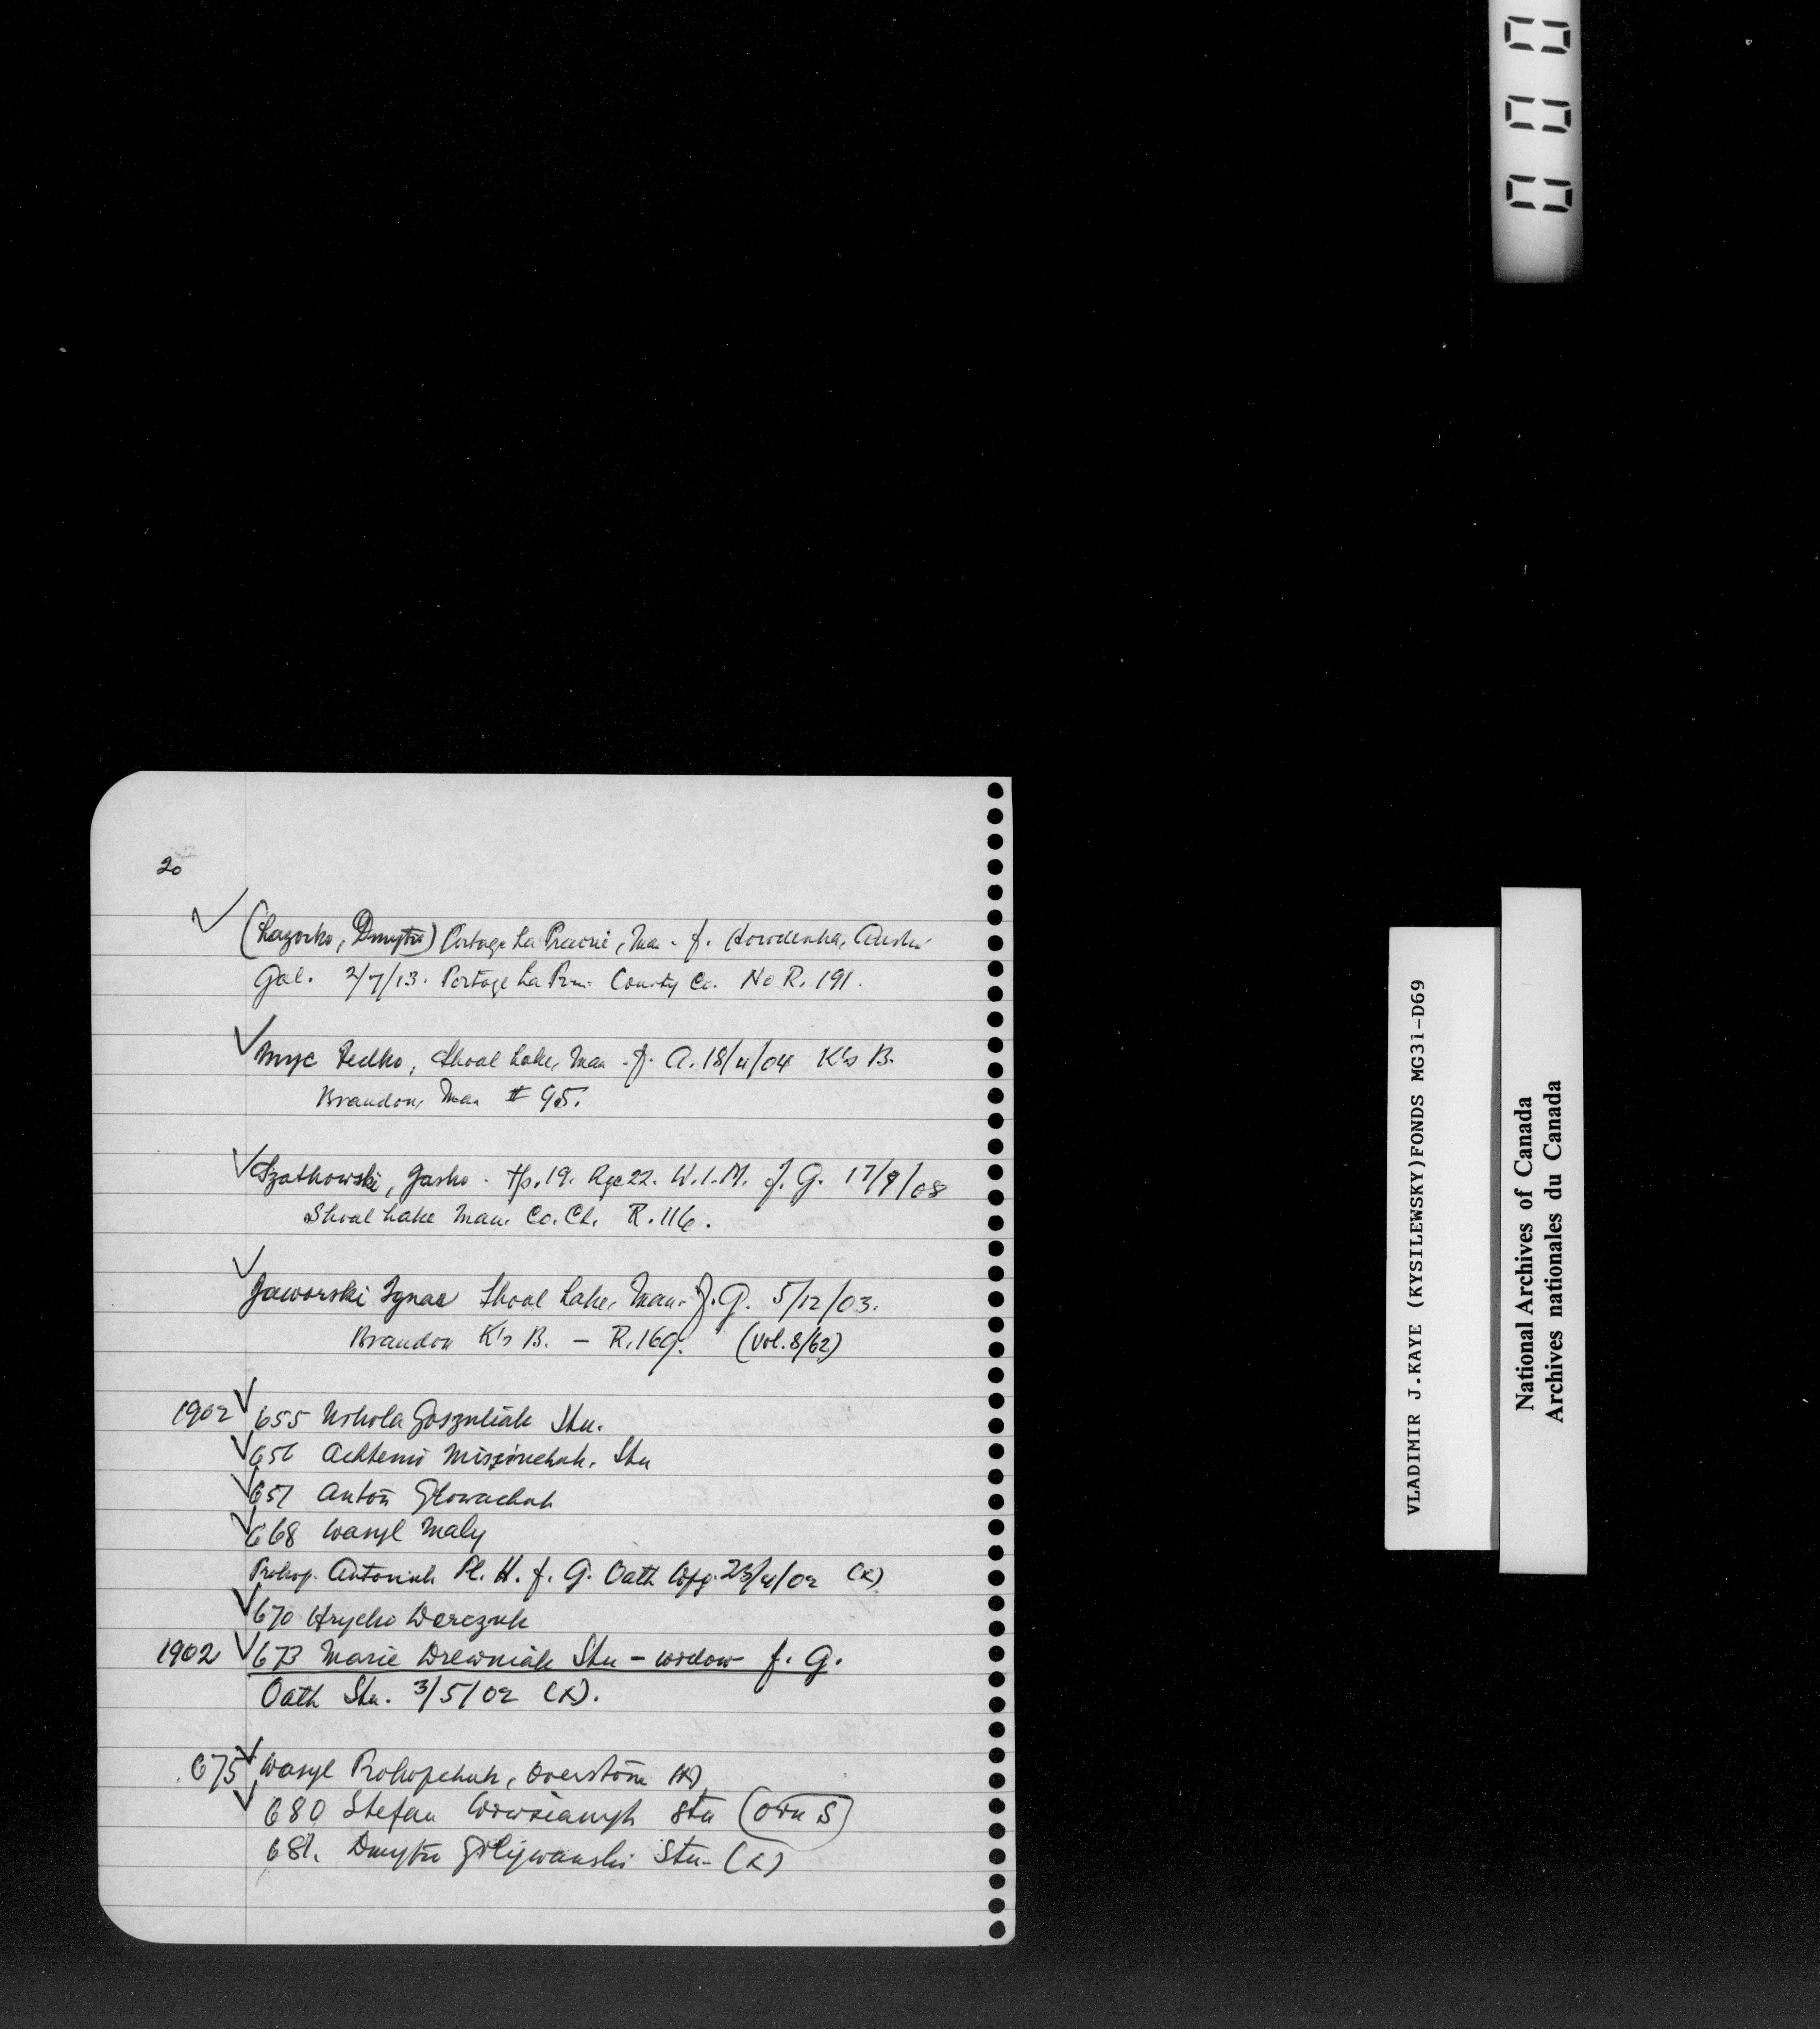 20
✓ (Lazorko, Dmytro) Portage La Prairie, Man. f. Horodenka, Austri
Gal. 2/7/13. Portage La Prai. County Co. No R. 191.
✓ Myc Fedko, Shoal Lake, Man. f. A. 18/4/04 K's B.
Brandon, Man # 95.
✓ Szatkowski, Jasko - Tp. 19. Rge 22. W.1.M. f. G. 17/9/08
Shoal Lake Man. Co. Ct. R. 116.
✓ Jaworski Ignac Shoal Lake, Man. f. G. 5/12/03.
Brandon K's B. — R. 169. (Vol. 8/62)
1902 ✓ 655 Nikola Goszuliak Stu.
✓ 656 Achtemi Stu
✓ 657 Anton Glowachuk
✓ 668 Wasyl Maly
Prokop Antoniuk Pl. H. f. G. Oath Wpg. 23/4/02 (x)
✓ 670 Hrycko Werczuk
1902 ✓ 673 Marie Drewniak Stu - widow f. G.
Oath Stu. 3/5/02 (x).
675 ✓ Wasyl Prokopchuk, Overstone (x)
✓ 680 Stefan Stu (own S)
681. Dmytro Stu - (x)
VLADIMIR J.KAYE (KYSILEWSKY)FONDS MG31-D69
National Archives of Canada
Archives nationales du Canada